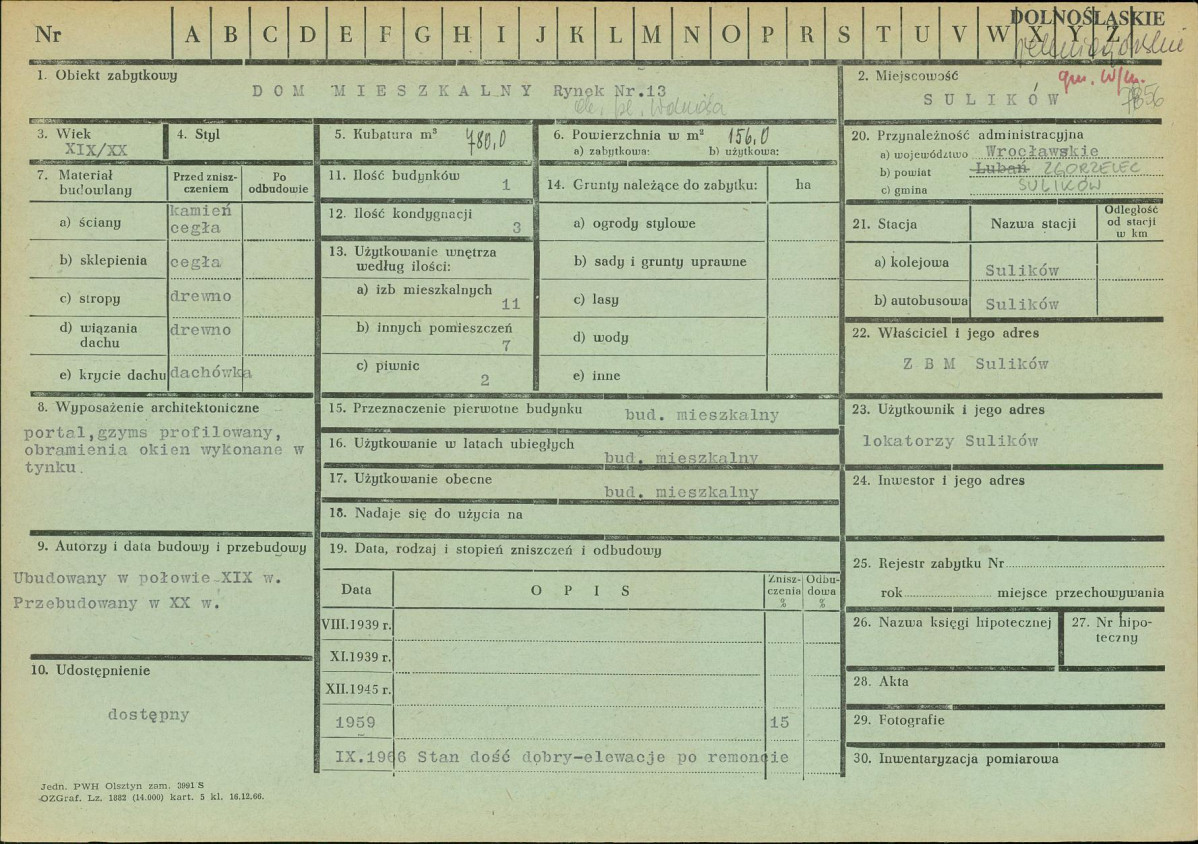 DOLNOŚLĄSKIE
Nr A B C D E F G H I J K L M N O P R S T U V W X Y Z
1. Obiekt zabytkowy
DOM MIESZKALNY Rynek Nr.13
pl. Wolności
2. Miejscowość
gm. w/m.
SULIKÓW
7856
3. Wiek
XIX/XX
4. Styl
5. Kubatura m³ 780,0
6. Powierzchnia w m² 156,0
a) zabytkowa: b) użytkowa:
7. Materiał budowlany
Przed zniszczeniem
Po odbudowie
a) ściany kamień cegła
b) sklepienia cegła
c) stropy drewno
d) wiązania dachu drewno
e) krycie dachu dachówka
8. Wyposażenie architektoniczne
portal,gzyms profilowany,
obramienia okien wykonane w
tynku.
9. Autorzy i data budowy i przebudowy
Ubudowany w połowie XIX w.
Przebudowany w XX w.
10. Udostępnienie
dostępny
11. Ilość budynków 1
12. Ilość kondygnacji 3
13. Użytkowanie wnętrza
według ilości:
a) izb mieszkalnych 11
b) innych pomieszczeń 7
c) piwnic 2
14. Grunty należące do zabytku: ha
a) ogrody stylowe
b) sady i grunty uprawne
c) lasy
d) wody
e) inne
15. Przeznaczenie pierwotne budynku bud. mieszkalny
16. Użytkowanie w latach ubiegłych bud. mieszkalny
17. Użytkowanie obecne bud. mieszkalny
18. Nadaje się do użycia na
19. Data, rodzaj i stopień zniszczeń i odbudowy
Data OPIS Zniszczenia % Odbudowa %
VIII.1939 r.
XI.1939 r.
XII.1945 r.
1959 15
IX.1966 Stan dość dobry-elewacje po remoncie
20. Przynależność administracyjna
a) województwo Wrocławskie
b) powiat Lubań ZGORZELEC
c) gmina SULIKÓW
21. Stacja Nazwa stacji Odległość od stacji w km
a) kolejowa Sulików
b) autobusowa Sulików
22. Właściciel i jego adres
Z B M Sulików
23. Użytkownik i jego adres
lokatorzy Sulików
24. Inwestor i jego adres
25. Rejestr zabytku Nr
rok miejsce przechowywania
26. Nazwa księgi hipotecznej
27. Nr hipoteczny
28. Akta
29. Fotografie
30. Inwentaryzacja pomiarowa
Jedn. PWH Olsztyn zam. 3991 S
OZGraf. Lz. 1882 (14.000) kart. 5 kl. 16.12.66.